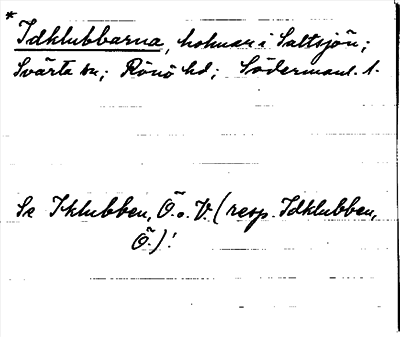 *
Idklubbarna, holmar i Saltsjön;
Svärta sn; Rönö hd; Södermanl. l.
Se Iklubben, Ö. o. V. (resp. Idklubben,
Ö.)!